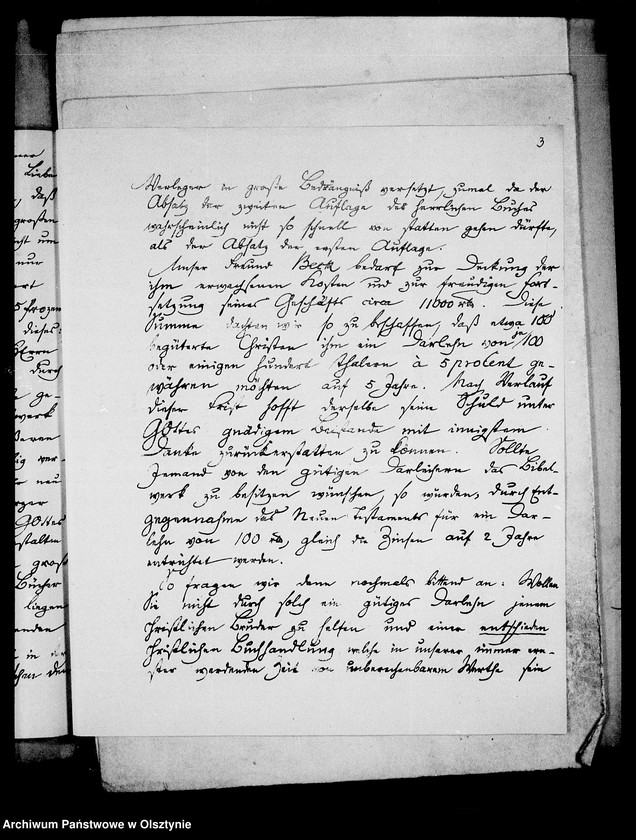 3
Verleger in große Bedrängniß versetzt, zumal da der
Absatz der zweiten Auflage des herrlichen Buches
wahrscheinlich nicht so schnell von statten gehen dürfte,
als der Absatz der ersten Auflage.
Unser Freund Beck bedarf zur Deckung der
ihm erwachsenen Kosten und zur freudigen Fort-
setzung seines Geschäfts circa 11000 rtl. Diese
Summe dachten wir so zu beschaffen, daß etwa 100
begüterte Christen ihm ein Darlehn von je 100
oder einigen hundert Thalern à 5 procent ge-
währen möchten auf 5 Jahre. Nach Verlauf
dieser Frist hofft derselbe seine Schuld unter
Gottes gnädigem Beistande mit innigstem
Danke zurückerstatten zu können. Sollte
Jemand von den gütigen Darleihern das Bibel-
werk zu besitzen wünschen, so würden, durch Ent-
gegennahme des Neuen Testaments für ein Dar-
lehn von 100 rtl., gleich die Zinsen auf 2 Jahre
entrichtet werden.
So fragen wir denn nochmals bittend an: Wollen
Sie nicht durch solch ein gütiges Darlehn jenem
christlichen Bruder zu helfen und einer entschieden
christlichen Buchhandlung welche in unserer immer ern-
ster werdenden Zeit von unberechenbarem Werthe sein
Liebe
daß
großen
nicht um
nur
5 Prozen
dieses
Herrn
durch
ge-
werk
ver-
neu
Gottes
stalten
groß
Bücher
liegen
enden
in
Archiwum Państwowe w Olsztynie